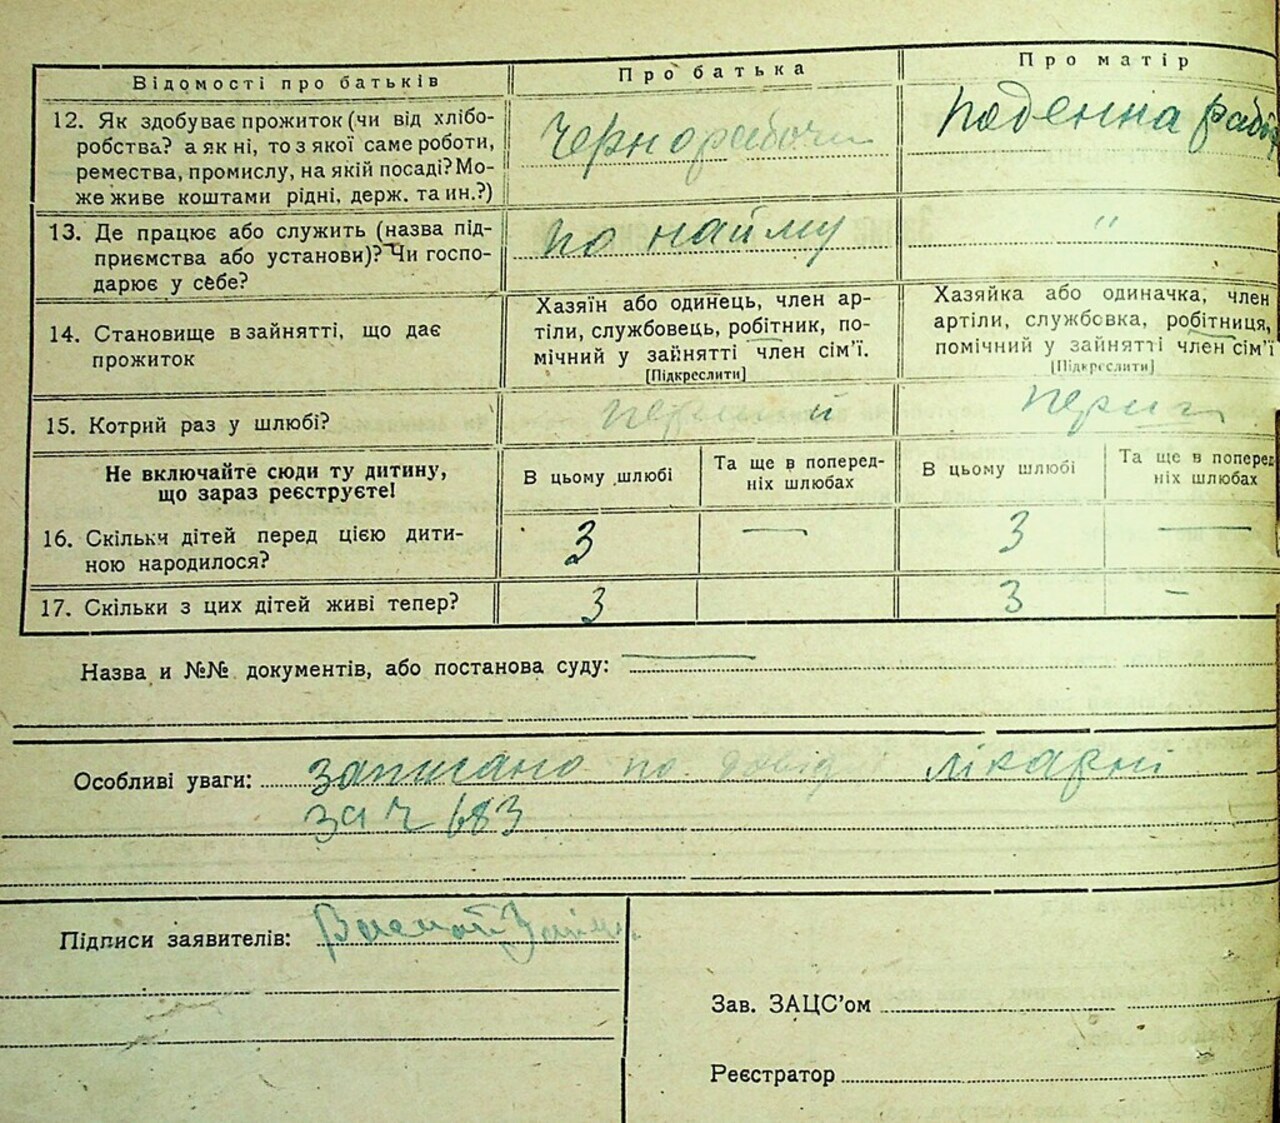 Відомості про батьків
Про батька
Про матір
12. Як здобуває прожиток (чи від хлібо-
робства? а як ні, то з якої саме роботи,
ремества, промислу, на якій посаді? Мо-
же живе коштами рідні, держ. та ин.?)
Чернорабочи
Поденна
13. Де працює або служить (назва під-
приємства або установи)? Чи госпо-
дарює у себе?
по найму
"
14. Становище в зайнятті, що дає
прожиток
Хазяїн або одинець, член ар-
тіли, службовець, робітник, по-
мічний у зайнятті член сім'ї.
[Підкреслити]
Хазяйка або одиначка, член
артіли, службовка, робітниця,
помічний у зайнятті член сім'ї
[Підкреслити]
15. Котрий раз у шлюбі?
перший
Не включайте сюди ту дитину,
що зараз реєструєте!
В цьому шлюбі
Та ще в поперед-
ніх шлюбах
В цьому шлюбі
Та ще в поперед-
ніх шлюбах
16. Скільки дітей перед цією дити-
ною народилося?
3 — 3 —
17. Скільки з цих дітей живі тепер?
3 3 -
Назва и №№ документів, або постанова суду: —
Особливі уваги: записано по довід лікарні
за ч 683
Підписи заявителів:
Зав. ЗАЦС'ом
Реєстратор